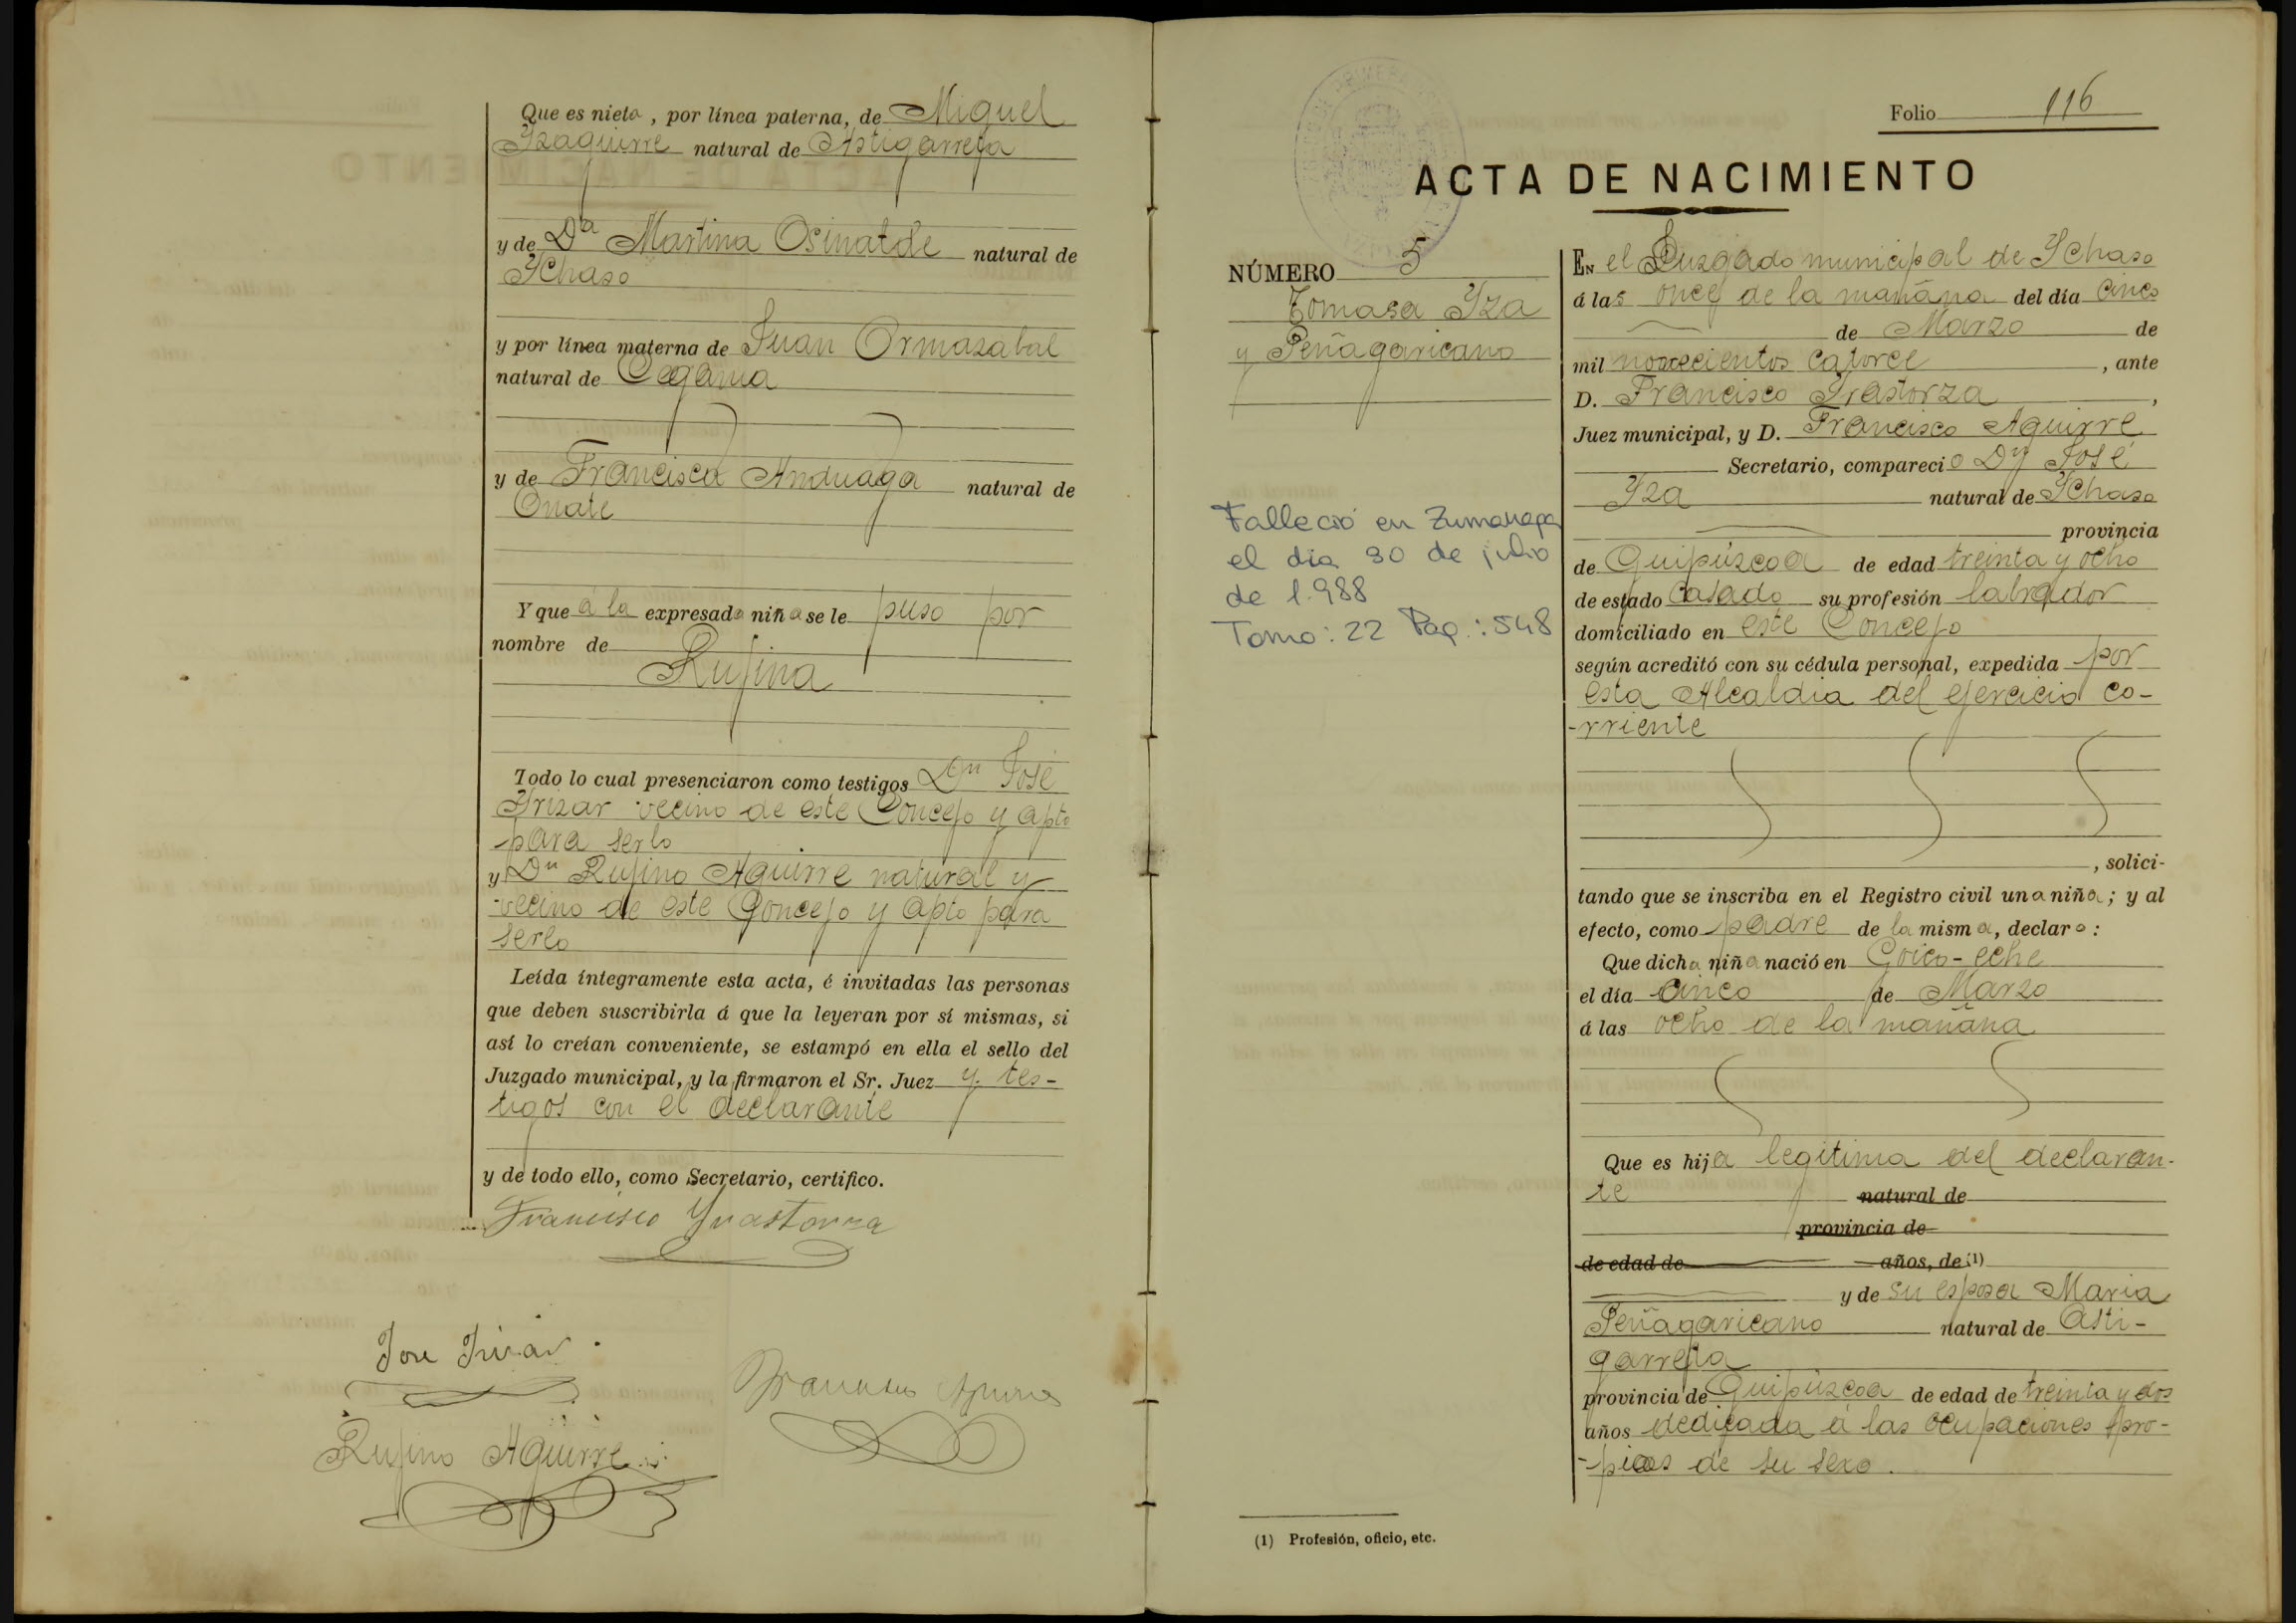 Que es nieta, por línea paterna, de Miguel
Yzaguirre natural de Astigarreta
y de Dª Martina Osinalde natural de
Ychaso
y por línea materna de Juan Ormazabal
natural de Cegama
y de Francisca Anduaga natural de
Oñate
Y que á la expresada niña se le puso por
nombre de
Rufina
Todo lo cual presenciaron como testigos Dn José
Yrizar vecino de este Concejo y apto
para serlo
y Dn Rufino Aguirre natural y
vecino de este Concejo y apto para
serlo
Leída íntegramente esta acta, é invitadas las personas
que deben suscribirla á que la leyeran por sí mismas, si
así lo creían conveniente, se estampó en ella el sello del
Juzgado municipal, y la firmaron el Sr. Juez y tes-
tigos con el declarante
y de todo ello, como Secretario, certifico.
Francisco Yrastorza
Jose Irizar
Francisco Aguirre
Rufino Aguirre
Folio 116
ACTA DE NACIMIENTO
NÚMERO 5
Tomasa Yza
y Peñagaricano
Falleció en Zumarraga
el día 30 de julio
de 1.988
Tomo: 22 Pag.: 548
EN el Juzgado municipal de Ychaso
á las once de la mañana del día cinco
de Marzo de
mil novecientos catorce, ante
D. Francisco Yrastorza,
Juez municipal, y D. Francisco Aguirre
Secretario, compareció Dn José
Yza natural de Ychaso
provincia
de Guipúzcoa de edad treinta y ocho
de estado casado su profesión labrador
domiciliado en este Concejo
según acreditó con su cédula personal, expedida por
esta Alcaldia del ejercicio co-
-rriente
, solici-
tando que se inscriba en el Registro civil una niña; y al
efecto, como padre de la misma, declaro:
Que dicha niña nació en Goico-eche
el día cinco de Marzo
á las ocho de la mañana
Que es hija legitima del declaran-
te natural de
provincia de
de edad de años, de (1)
y de su esposa Maria
Peñagaricano natural de Asti-
garreta
provincia de Guipúzcoa de edad de treinta y dos
años dedicada á las ocupaciones pro-
-pias de su sexo.
(1) Profesión, oficio, etc.